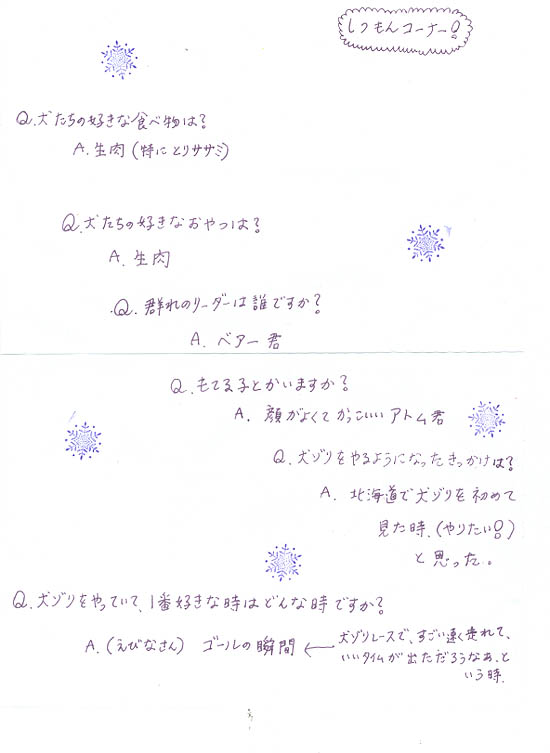 しつもんコーナー!
Q.犬たちの好きな食べ物は?
A.生肉(特にとりササミ)
Q.犬たちの好きなおやつは?
A.生肉
Q.群れのリーダーは誰ですか?
A.ベアー君
Q.もてる子とかいますか?
A.顔がよくてかっこいいアトム君
Q.犬ゾリをやるようになったきっかけは?
A.北海道で犬ゾリを初めて
見た時、(やりたい!)
と思った。
Q.犬ゾリをやっていて、1番好きな時はどんな時ですか?
A.(えびなさん) ゴールの瞬間 ← 犬ゾリレースで、すごい速く走れて、
いいタイムが出ただろうなあ、と
いう時.